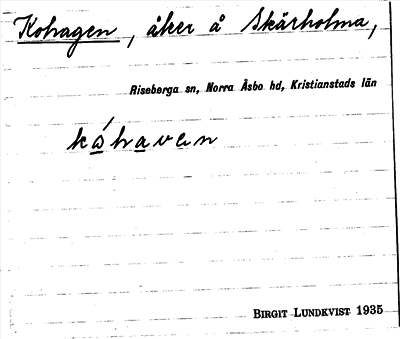 Kohagen, åker å Skärholma,
Riseberga sn, Norra Åsbo hd, Kristianstads län
kóhaven
BIRGIT LUNDKVIST 1935